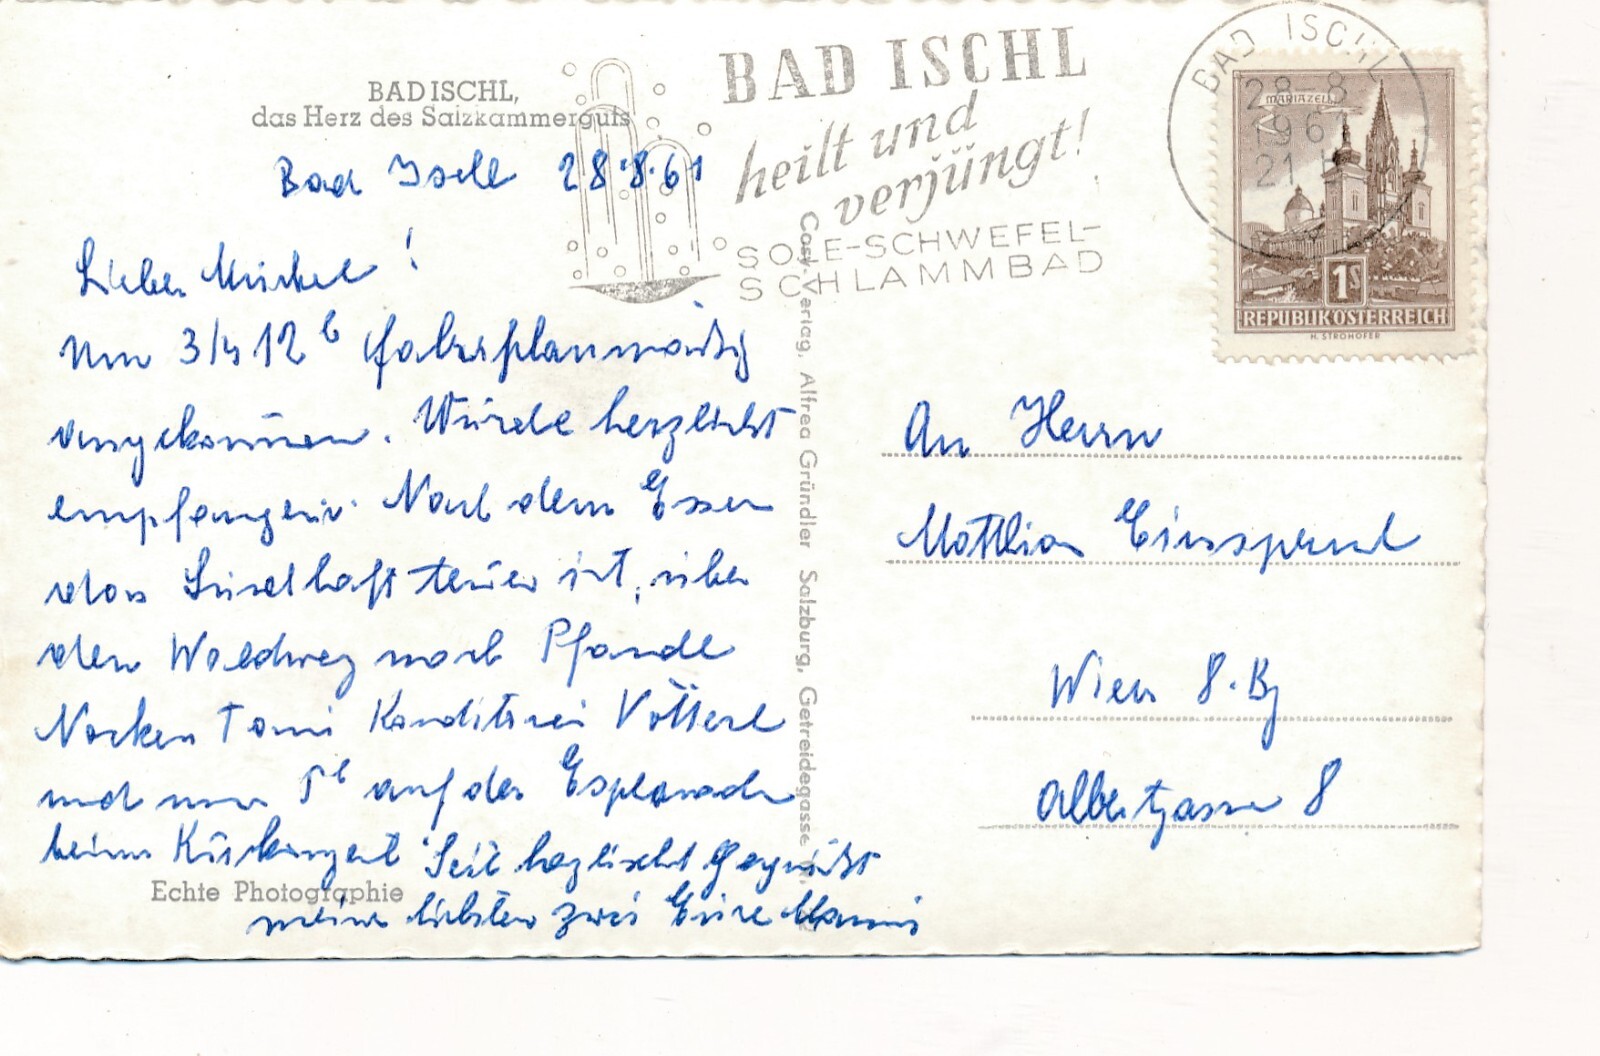 BAD ISCHL,
das Herz des Salzkammerguts
BAD ISCHL
heilt und
verjüngt!
SOLE-SCHWEFEL-
SCHLAMMBAD
BAD ISCHL
28-8
1961
21
MARIAZELL
1S
REPUBLIK ÖSTERREICH
H. STROHOFER
Bad Ischl 28.8.61
Lieber Michel!
Um 3/4 12 h fahrplanmäßig
angekommen. Wurde herzlichst
empfangen. Nach dem Essen
das teuer ist, über
den Waldweg nach Pfandl
Nocken Toni Konditorei
und um 5h auf der Esplanade
beim Kurkonzert Seit herzlichst gegrüßt
meine liebsten zwei Eure Mami
Echte Photographie
Cosy-Verlag, Alfred Gründler Salzburg, Getreidegasse
An Herrn
Matthias
Wien 8. Bz
Albertgasse 8